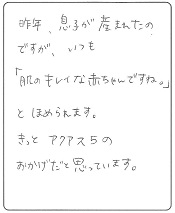 昨年、息子が産まれたの
ですが、いつも
「肌のキレイな赤ちゃんですね。」
とほめられます。
きっとアクアス5の
おかげだと思っています。